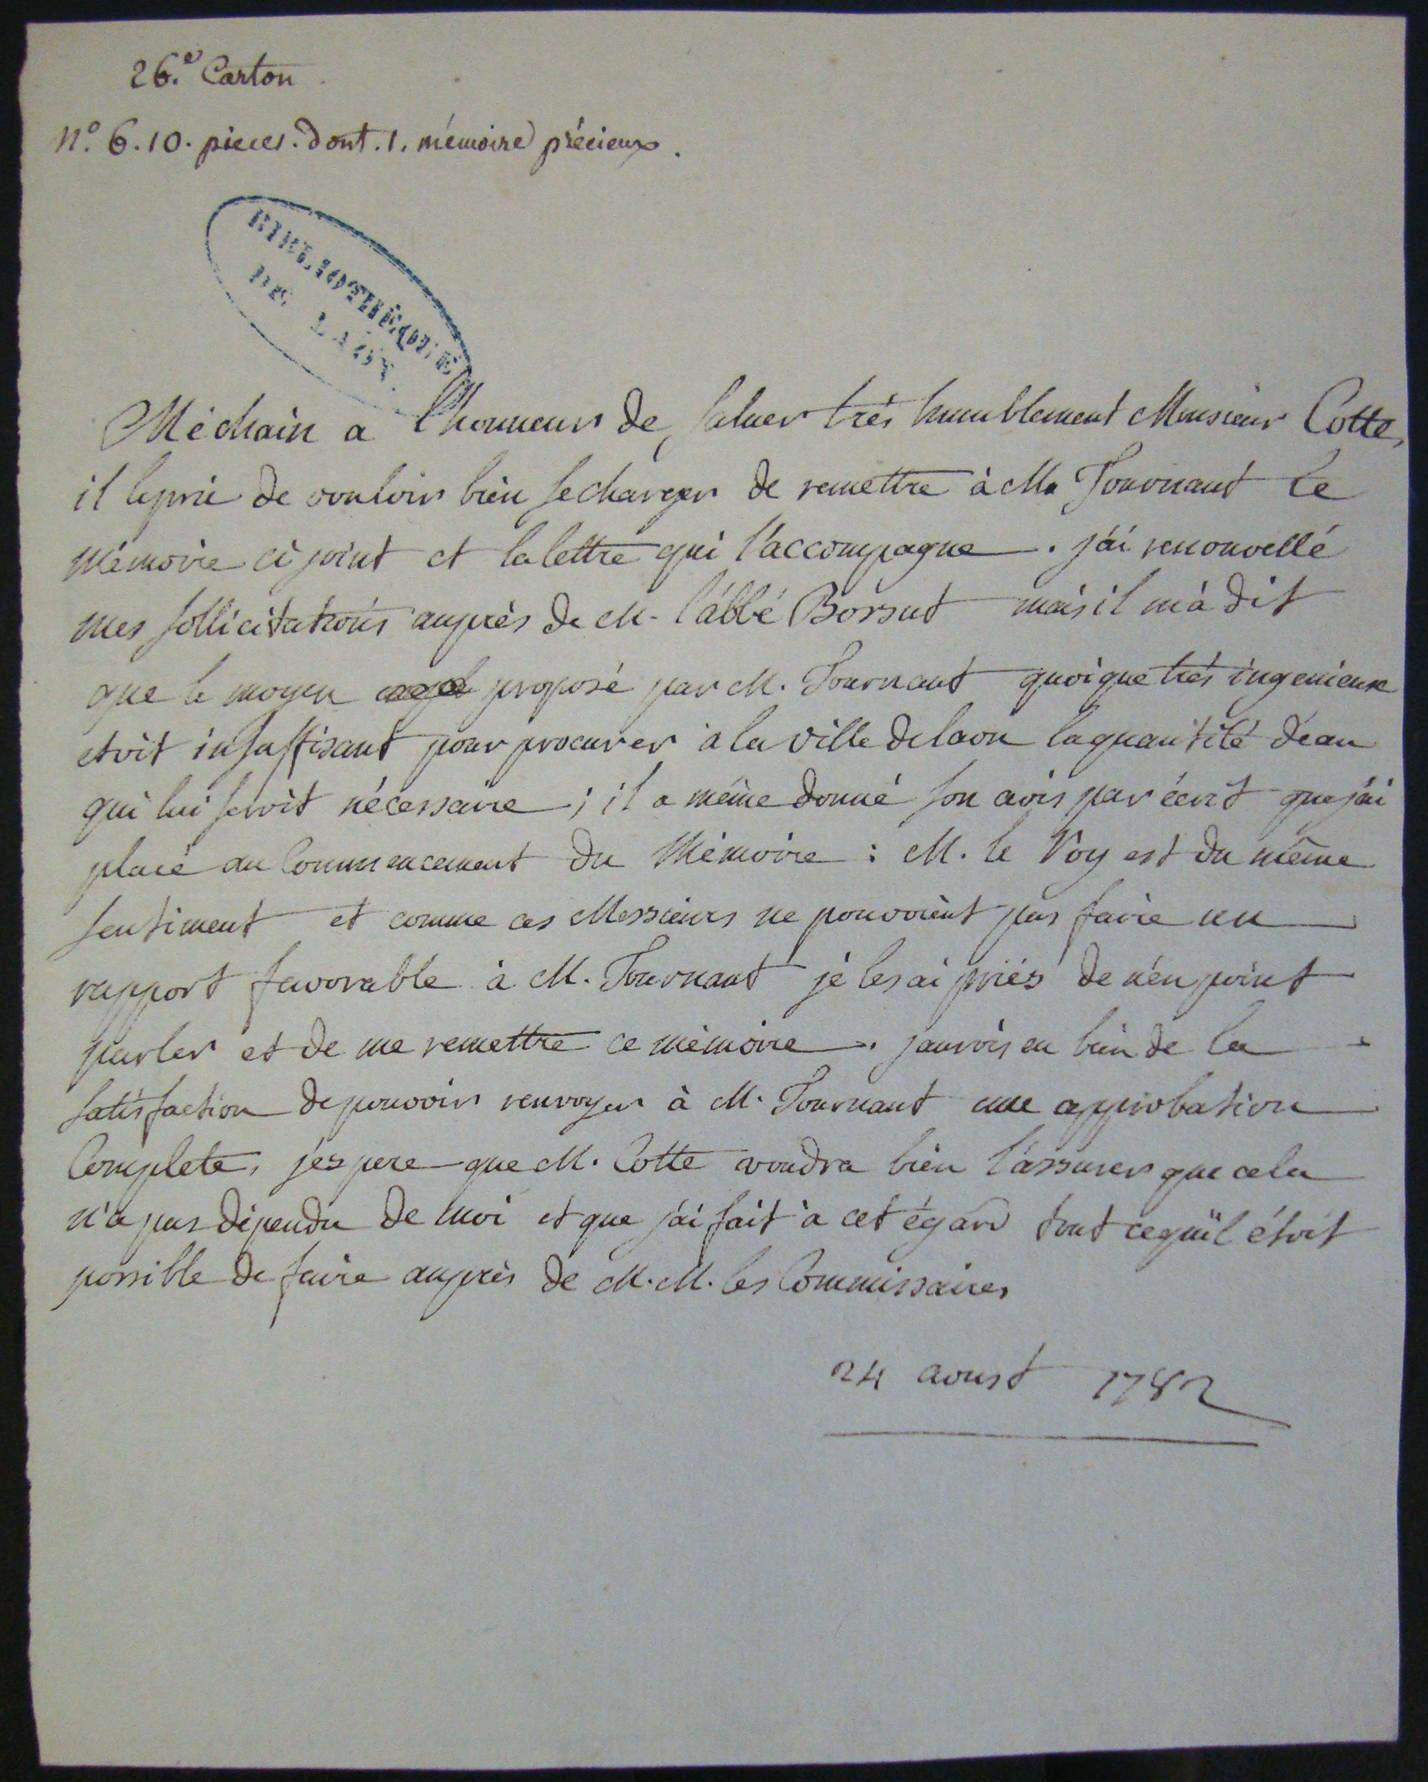 26.e Carton
N.o 6.10. pieces. dont. 1. mémoire précieux.
BIBLIOTHÈQUE
DE LAON.
Méchain a l'honneur de saluer très humblement Monsieur Cotte,
il le prie de vouloir bien se charger de remettre à M. Tournant le
mémoire ci joint et la lettre qui l'accompagne. j'ai renouvellé
mes sollicitations auprès de M. l'abbé Bossut mais il m'a dit
que le moyen proposé par M. Tournant quoique très ingenieux
etoit insuffisant pour procurer à la ville de laon la quantité d'eau
qui lui seroit nécessaire; il a même donné son avis par écrit que j'ai
placé au Commencement du Mémoire: M. le Roy est du même
sentiment et comme ces Messieurs ne pouvoient pas faire un
rapport favorable à M. Tournant je les ai priés de n'en point
parler et de me remettre ce mémoire. j'aurois eu bien de la
satisfaction de pouvoir renvoyer à M. Tournant une approbation
Complete, j'espere que M. Cotte voudra bien l'assurer que cela
n'a pas dépendu de moi et que j'ai fait à cet égard tout ce qu'il étoit
possible de faire auprès de M.M. les Commissaires
24 aoust 1782